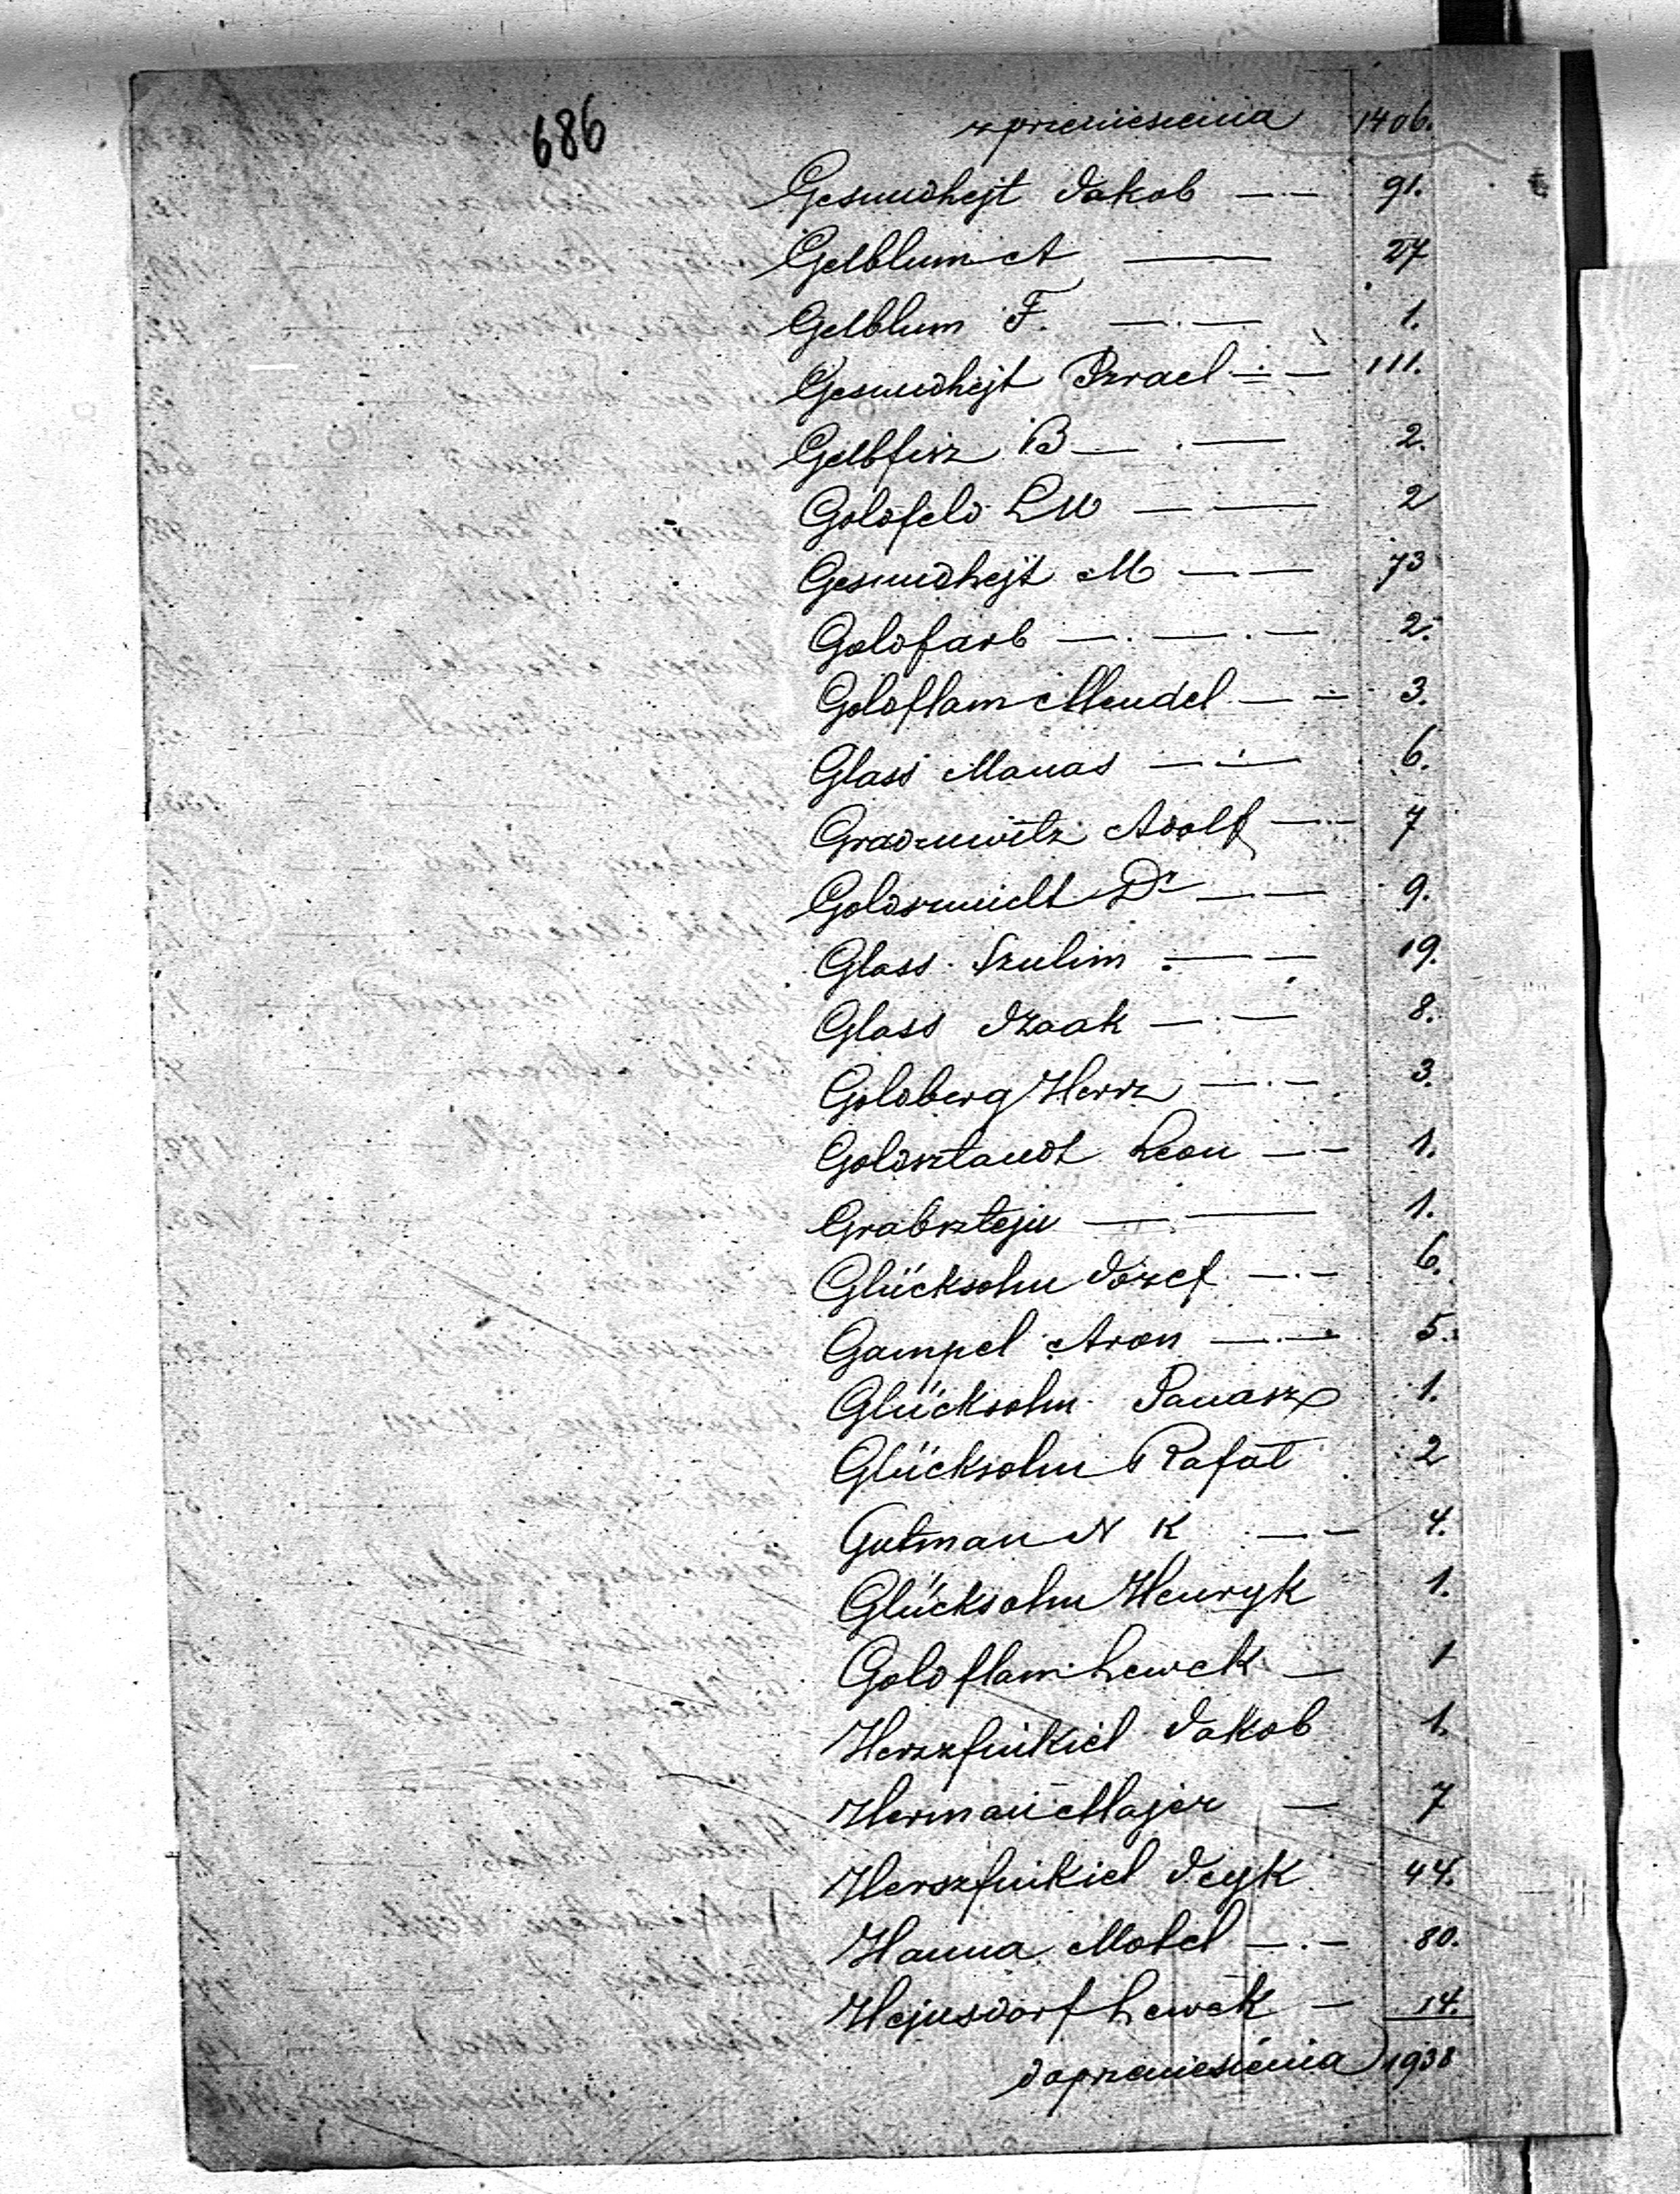 686
z przeniesienia 1406.
Gesundhejt Jakob —·— 91.
Gelblum A —— 27
Gelblum F. —·— 1.
Gesundhejt Izrael —·— 111.
Gelbfisz B —·— 2.
Goldfeld LM —— 2
Gesundhejt M —— 73
Goldfarb —·—·— 2.
Goldflam Mendel —— 3.
Glass Manas —·— 6.
Gradzuwitz Adolf —·— 7
Goldszmidt Dr —— 9.
Glass Szulim —— 19.
Glass Izaak —·— 8.
Goldberg Hersz —·— 3.
Goldsztandt Leon —— 1.
Grabsztejn —— 1.
Glücksohn Józef —·— 6.
Gampel Aron —·— 5.
Glücksohn Panasz 1.
Glücksohn Rafał 2
Gutman N K —— 4.
Glücksohn Henryk 1.
Goldflam Lewek — 1
Herszfinkiel Jakob 1.
Herman Majer — 7
Herszfinkiel Icyk 44.
Hanna Motel —·— 80.
Hejnsdorf Lewek — 14.
do przeniesienia 1938